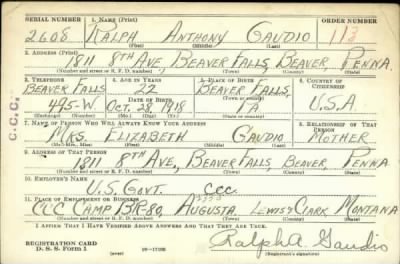 SERIAL NUMBER 1. NAME (Print) ORDER NUMBER
2608 RALPH ANTHONY GAUDIO 113
(First) (Middle) (Last)
2. ADDRESS (Print)
1811 8TH AVE, BEAVER FALLS, BEAVER, PENNA.
(Number and street or R. F. D. number) (Town) (County) (State)
3. TELEPHONE 4. AGE IN YEARS 5. PLACE OF BIRTH 6. COUNTRY OF CITIZENSHIP
BEAVER FALLS 22 BEAVER FALLS,
DATE OF BIRTH
495-W OCT. 28, 1918 PA U.S.A
7. NAME OF PERSON WHO WILL ALWAYS KNOW YOUR ADDRESS 8. RELATIONSHIP OF THAT PERSON
MRS. ELIZABETH GAUDIO MOTHER
(Mr., Mrs., Miss) (First) (Middle) (Last)
9. ADDRESS OF THAT PERSON
1811 8TH AVE., BEAVER FALLS, BEAVER, PENNA
(Number and street or R. F. D. number) (Town) (County) (State)
10. EMPLOYER'S NAME
U.S. GOVT. CCC.
11. PLACE OF EMPLOYMENT OR BUSINESS
CCC CAMP BR-80, AUGUSTA, LEWIS & CLARK MONTANA
(Number and street or R. F. D. number) (Town) (County) (State)
I AFFIRM THAT I HAVE VERIFIED ABOVE ANSWERS AND THAT THEY ARE TRUE.
REGISTRATION CARD Ralph A. Gaudio
D. S. S. Form 1 (over) (Registrant's signature)
C.C.C.